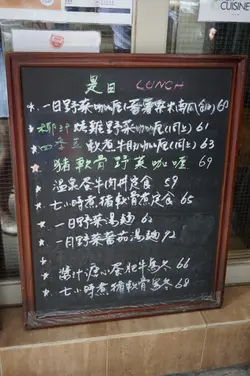 CUISINE
是日 LUNCH
一日野菜咖喱(蕃薯粟米南瓜(包)) 60
椰汁燒雞野菜咖喱(同上) 61
四季豆軟煮牛肋咖喱(同上) 63
猪軟骨野菜咖喱 69
温泉蛋牛肉丼定食 59
七小時煮猪軟骨煮定食 65
一日野菜湯麵 62
一日野菜蕃茄湯麵 92
醬汁溏心蛋肥牛烏冬 66
七小時煮猪軟骨烏冬 68